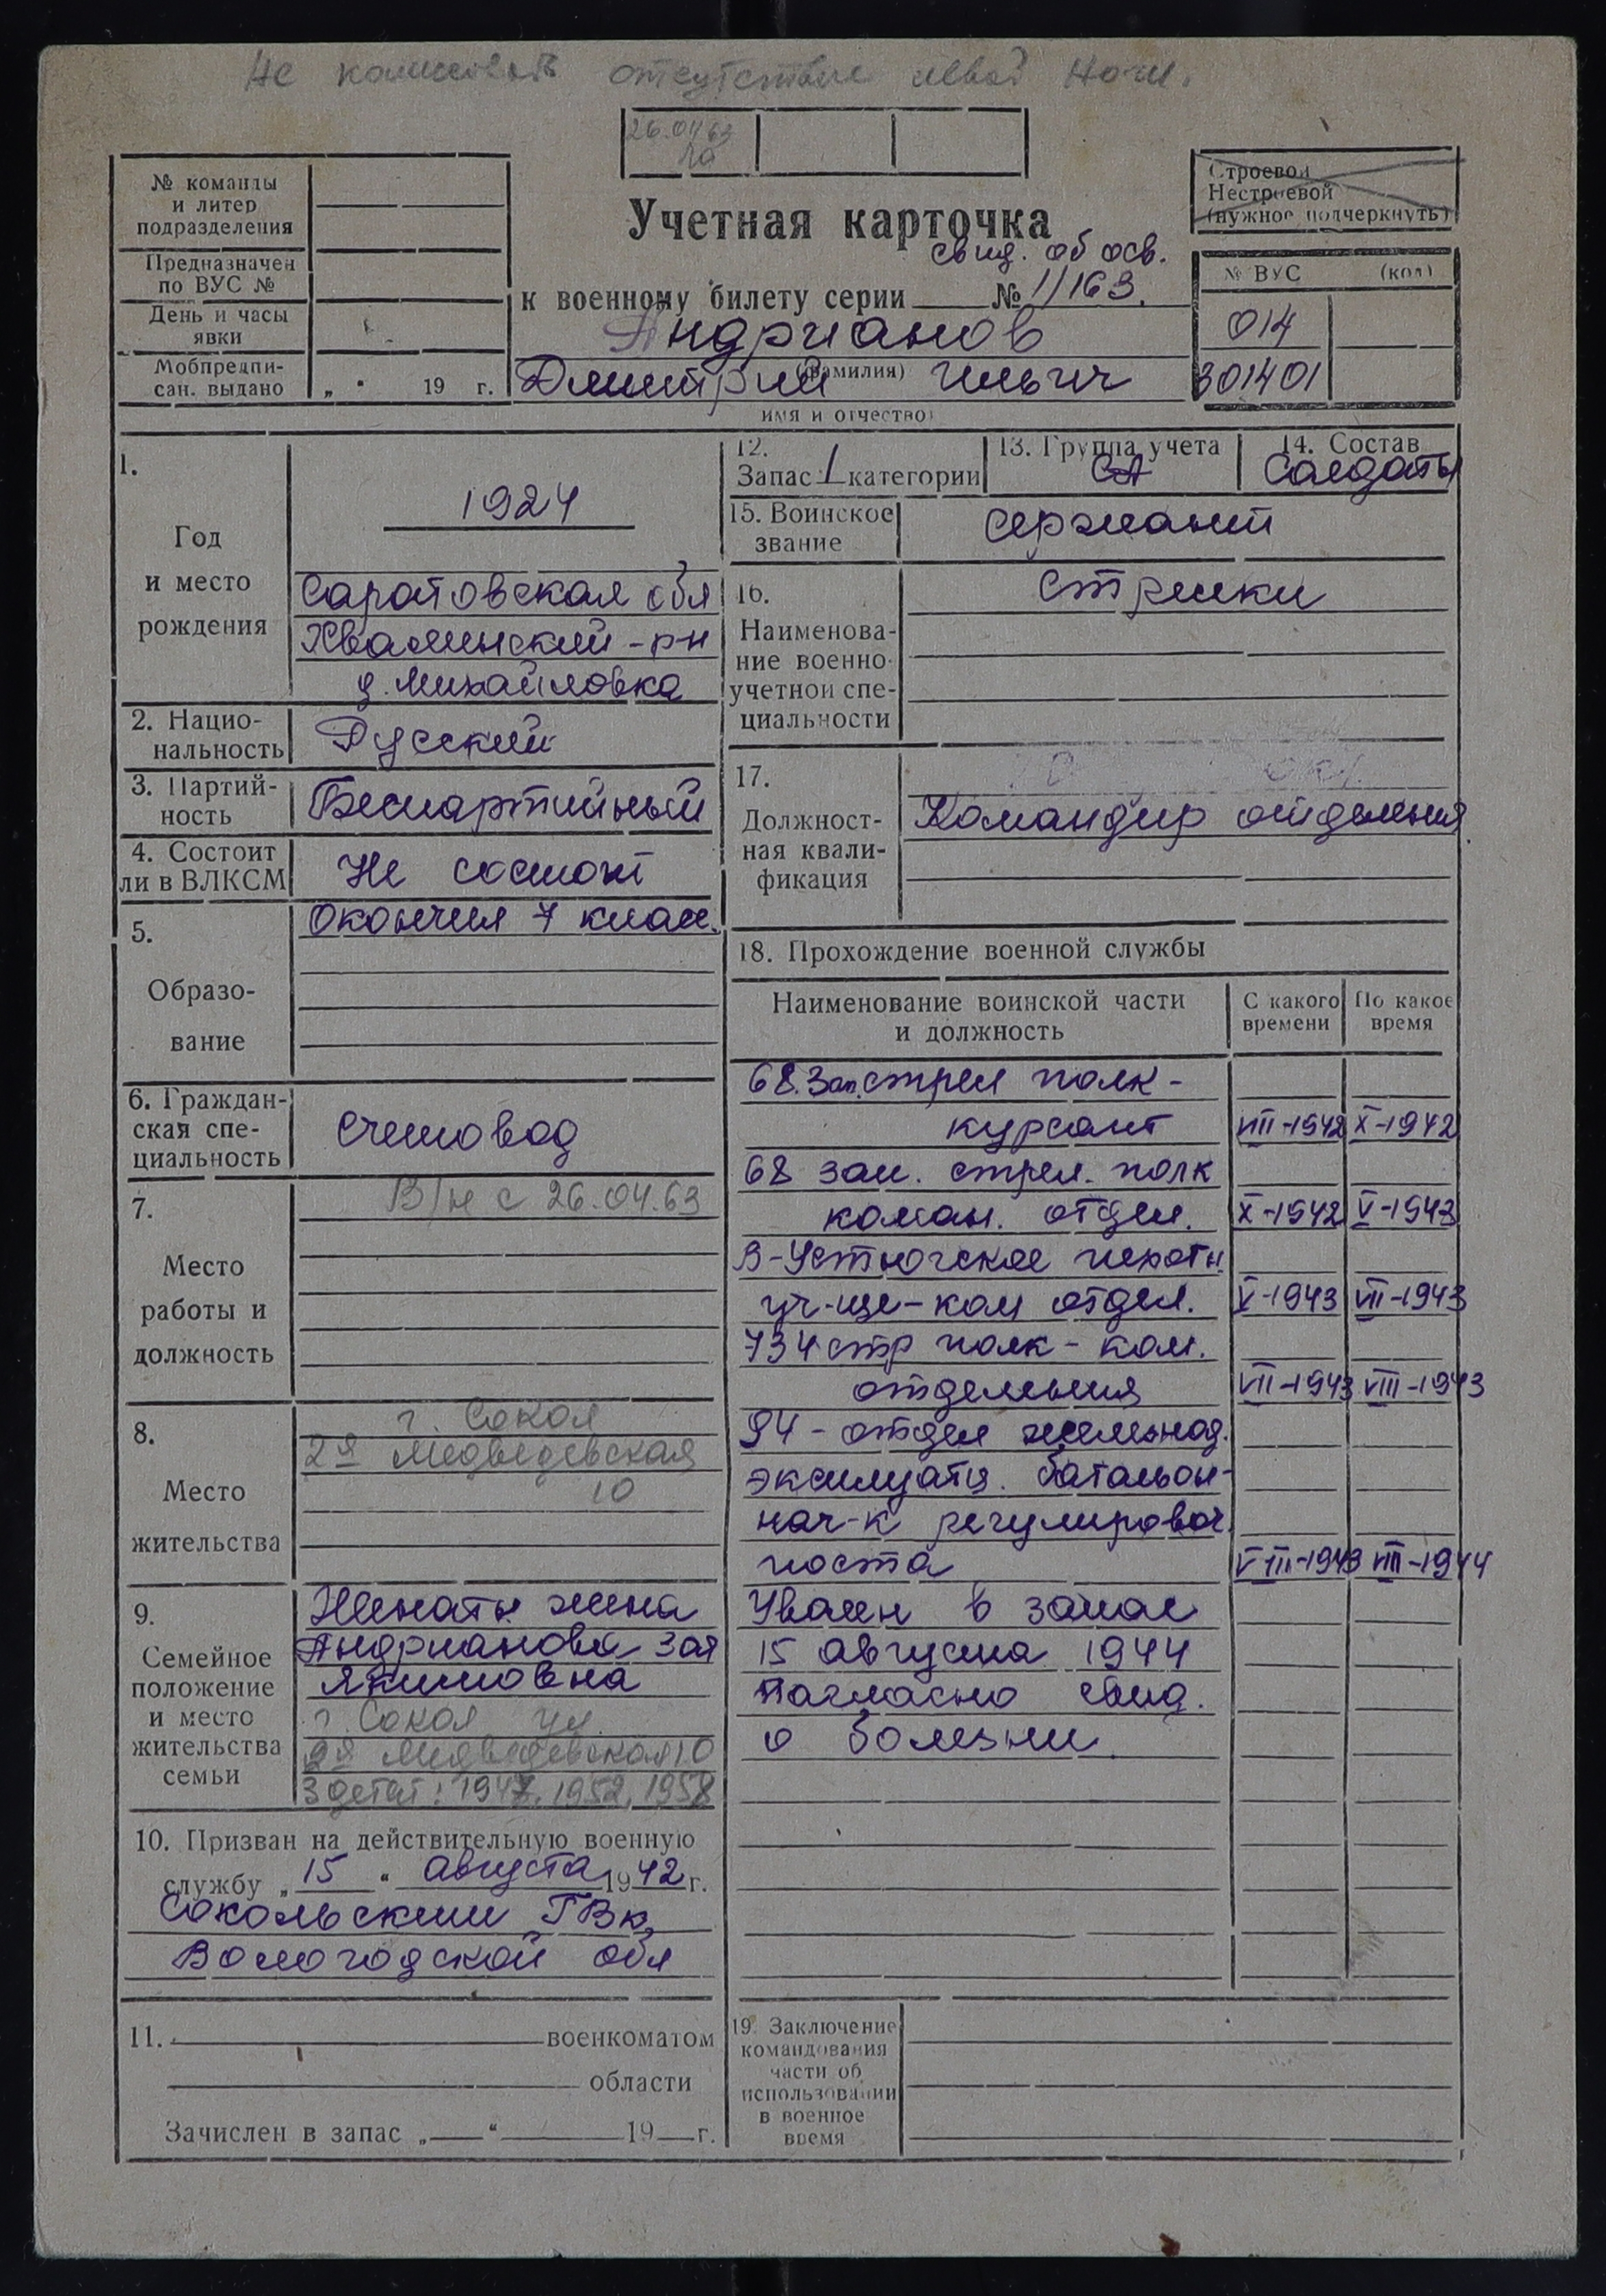 отсутствие левой ноги.
26.04.63
№ команды
и литер
подразделения
Предназначен
по ВУС №
День и часы
явки
Мобпредпи-
сан. выдано „ “ 19 г.
Строевой
Нестроевой
(нужное подчеркнуть)
Учетная карточка
свид. об осв.
к военному билету серии № 1/163.
Андрианов
(фамилия)
Дмитрий Ильич
имя и отчество)
№ ВУС (код)
014
301401
1.
Год
и место
рождения
1924
Саратовская обл
Хвалынский-р-н
д. Михайловка
2. Нацио-
нальность
Русский
3. Партий-
ность
Беспартийный
4. Состоит
ли в ВЛКСМ
Не состоит
5.
Образо-
вание
Окончил 7 клас.
6. Граждан-
ская спе-
циальность
Счетовод
7.
Место
работы и
должность
В/н с 26.04.63
8.
Место
жительства
г. Сокол
2я Медведевская
10
9.
Семейное
положение
и место
жительства
семьи
Женат: жена
Андрианова Зоя
Якимовна
г. Сокол ул.
2я Медведевская 10
3 детей: 1947, 1952, 1958
10. Призван на действительную военную
службу „ 15 “ августа 1942 г.
Сокольским ГВк,
Вологодской обл
11. военкоматом
области
Зачислен в запас „ “ 19 г.
12.
Запас 1 категории
13. Группа учета
СА
14. Состав
Солдаты
15. Воинское
звание
Сержант
16.
Наименова-
ние военно-
учетной спе-
циальности
Стрелки
17.
Должност-
ная квали-
фикация
Командир отделения
18. Прохождение военной службы
Наименование воинской части
и должность
С какого
времени
По какое
время
68. Зап. стрел полк -
курсант VIII-1942 X-1942
68 зап. стрел. полк
коман. отдел. X-1942 V-1943
В-Устюгское пехотн.
уч-ще-ком отдел. V-1943 VII-1943
734 стр полк - ком.
отделения VII-1943 VIII-1943
94 - отдел железнод.
эксплуата. батальон-
нач-к регулировоч.
поста VIII-1943 VIII-1944
Уволен в запас
15 августа 1944
согласно свид.
о болезни.
19. Заключение
командования
части об
использовании
в военное
время